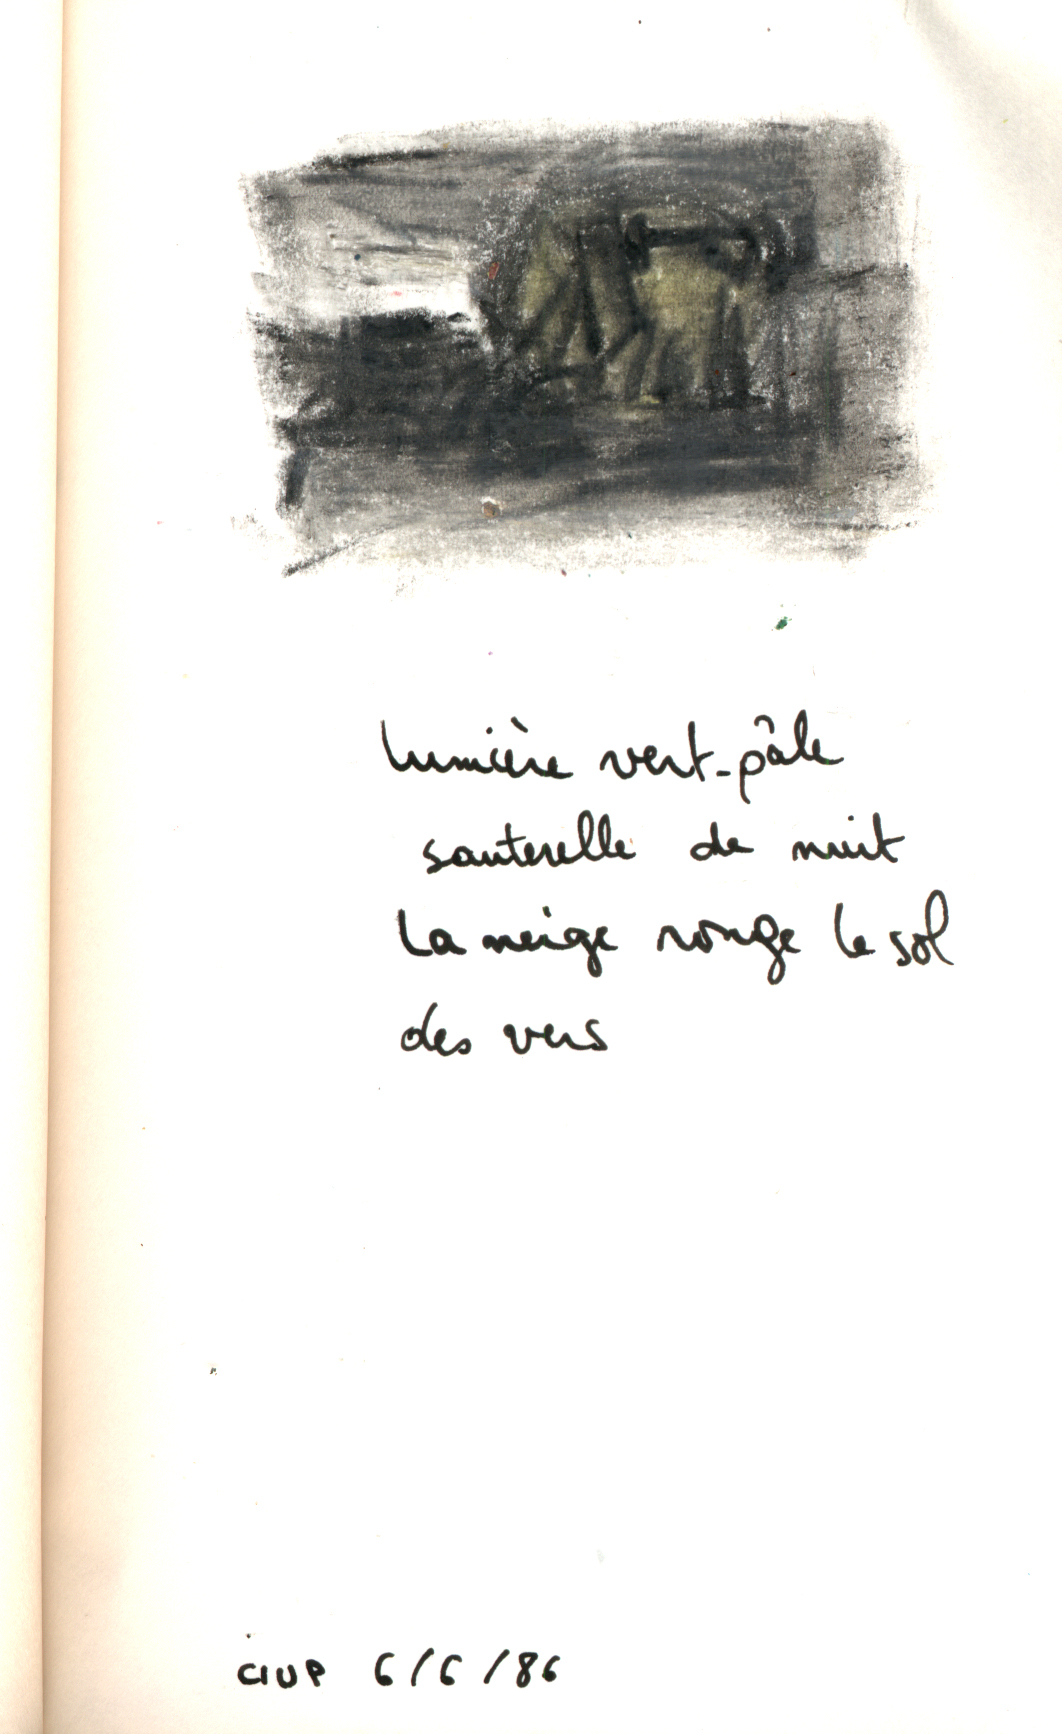 lumière vert-pâle
sauterelle de nuit
La neige ronge le sol
des vers
CIUP 6/6/86